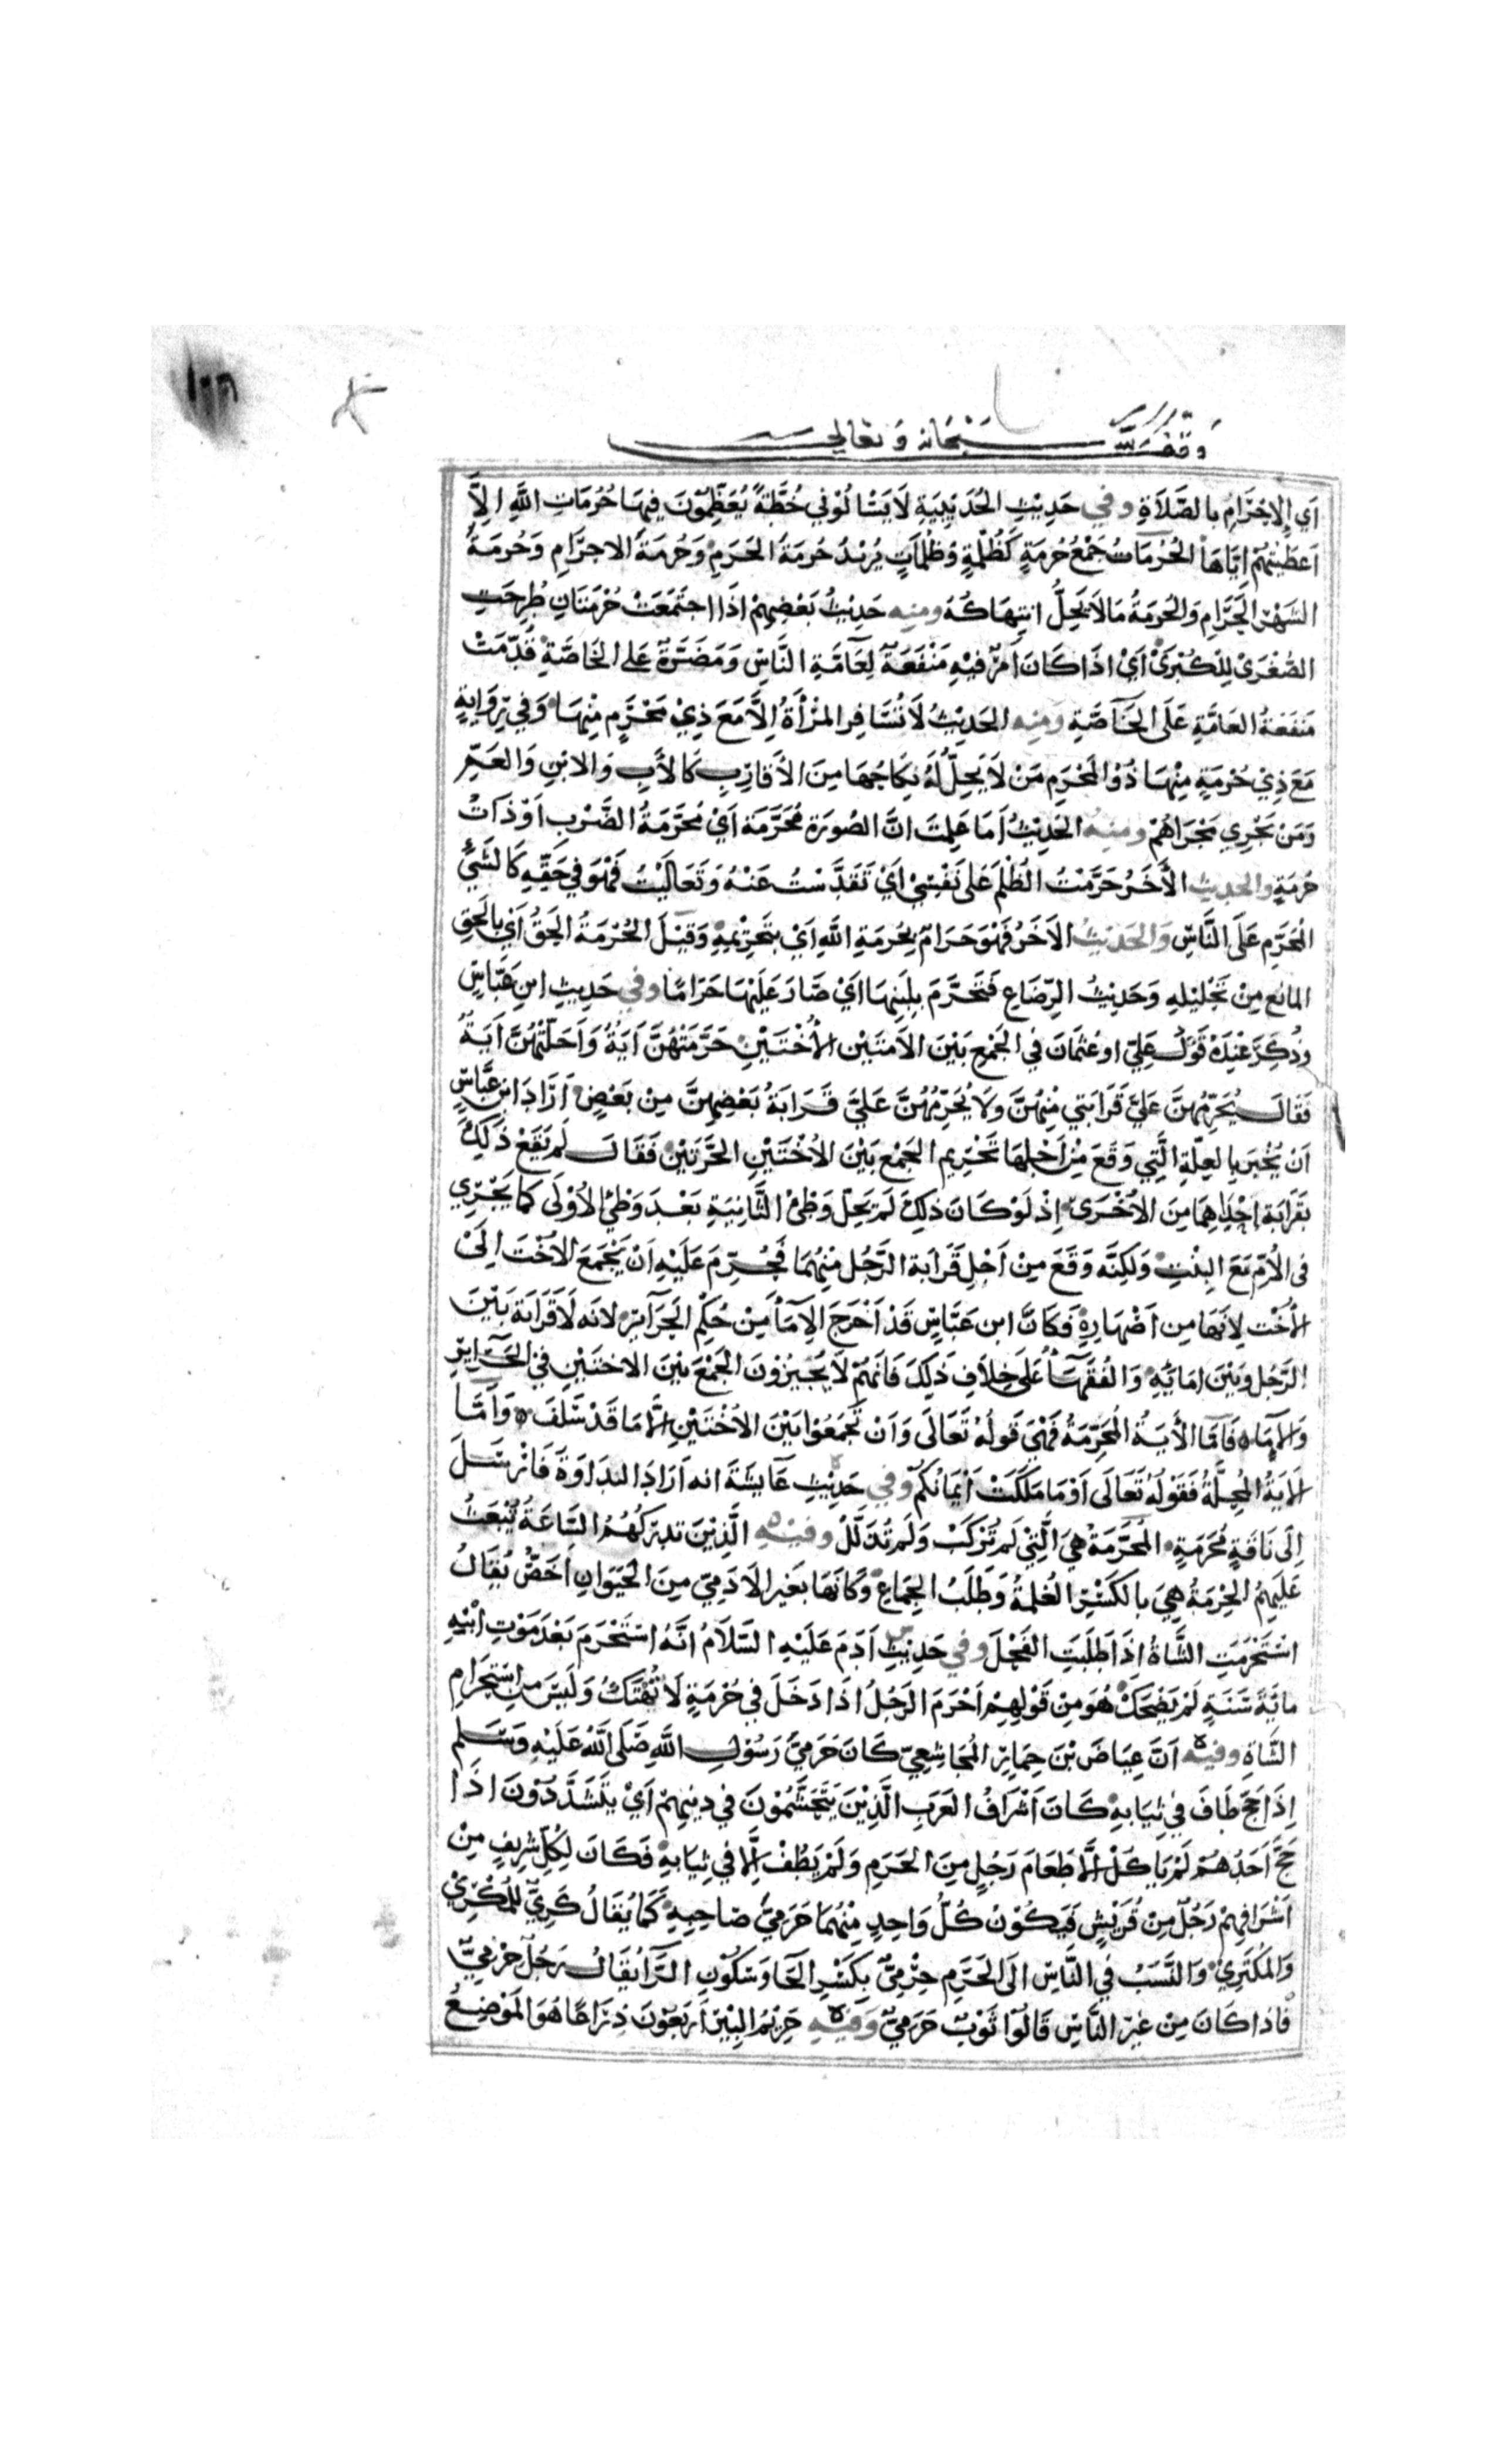 وقف لله سبحانه وتعالى
أي الإحرام بالصلاة وفي حديث الحديبية لا يسألوني خطة يعظمون فيها حرمات الله إلا
أعطيتهم إياها الحرمات جمع حرمة كظلمة وظلمات يريد حرمة الحرم وحرمة الاحرام وحرمة
الشهر الحرام والحرمة ما لا يحل انتهاكه ومنه حديث بعضهم اذا اجتمعت حرمتان طرحت
الصغرى للكبرى أي اذا كان أمر فيه منفعة لعامة الناس ومضرة على الخاصة قدمت
منفعة العامة على الخاصة ومنه الحديث لا تسافر المرأة إلا مع ذي محرم منها وفي رواية
مع ذي حرمة منها ذو المحرم من لا يحل له نكاحها من الأقارب كالأب والابن والعم
ومن يجري مجراهم ومنه الحديث أما علمت ان الصورة محرمة أي محرمة الضرب أو ذات
حرمة والحديث الأخر حرمت الظلم على نفسي أي تقدست عنه وتعاليت فهو في حقه كالشيء
المحرم على الناس والحديث الآخر فهو حرام بحرمة الله أي بتحريمه وقيل الحرمة الحق أي بالحق
المانع من تحليله وحديث الرضاع فتحرم بلبنها اي صار عليها حراما وفي حديث ابن عباس
وذكر عنده قول علي او عثمان في الجمع بين الامتين الأختين حرمتهن آية وأحلتهن آية
فقال يحرمهن علي قرابتي منهن ولا يحرمهن علي قرابة بعضهن من بعض أراد ابن عباس
أن يخبر بالعلة التي وقع من أجلها تحريم الجمع بين الأختين الحرتين فقال لم يقع ذلك
بقرابة إحداهما من الأخرى إذ لو كان ذلك لم يحل وطئ الثانية بعد وطئ الأولى كما يجري
في الأم مع البنت ولكنه وقع من أجل قرابة الرجل منهما فحرم عليه أن يجمع الأخت إلى
الأخت لأنها من أصهاره فكان ابن عباس قد أخرج الآماء من حكم الحرائر لانه لا قرابة بين
الرجل وبين امائه والفقهاء على خلاف ذلك فانهم لا يجيزون الجمع بين الاختين في الحرائر
والإماء فأما الأية المحرمة فهي قوله تعالى وأن تجمعوا بين الأختين إلا ما قد سلف وأما
الآية المحلة فقوله تعالى أو ما ملكت أيمانكم وفي حديث عايشة انه أراد البداوة فأرسل
إلى ناقة محرمة المحرمة هي التي لم تركب ولم تذلل وفيه الذين تدركهم الساعة تبعث
عليهم الحرمة هي بالكسر الغلمة وطلب الجماع وكانها بغير الآدمي من الحيوان أخص يقال
استحرمت الشاة إذا طلبت الفحل وفي حديث آدم عليه السلام انه استحرم بعد موت ابنه
ماية سنة لم يضحك هو من قولهم أحرم الرجل اذا دخل في حرمة لا تهتك وليس من استحرام
الشاة وفيه أن عياض بن حمار المجاشعي كان حرمي رسول الله صلى الله عليه وسلم
إذا حج طاف في ثيابه كان أشراف العرب الذين يتحمسون في دينهم أي يتشددون اذا
حج أحدهم لم يأكل إلا طعام رجل من الحرم ولم يطف إلا في ثيابه فكان لكل شريف من
أشرافهم رجل من قريش فيكون كل واحد منهما حرمي صاحبه كما يقال كري للمكري
والمكتري والنسب في الناس الى الحرم حرمي بكسر الحا وسكون الرا يقال رجل حرمي
فاذا كان من غير الناس قالوا ثوب حرمي وفيه حريم البئر أربعون ذراعا هو الموضع